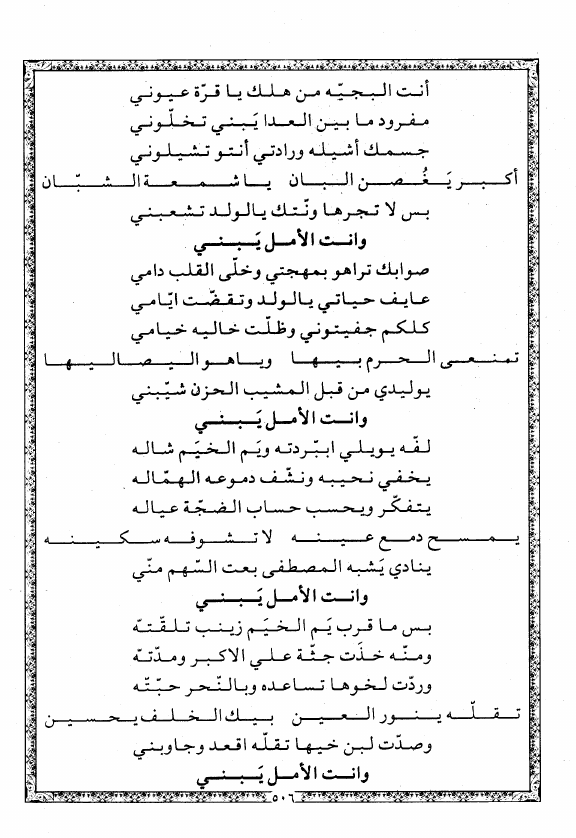 أنت البجيّه من هلك يا قرّة عيوني
مفرود ما بين العدا يَبني تخلّوني
جسمك أشيله ورادتي أنتو تشيلوني
أكبر يَغُصن البان يا شمعة الشبّان
بس لا تجرها ونّتك يالولد تشعبني
وانت الأمل يَبني
صوابك تراهو بمهجتي وخلّى القلب دامي
عايف حياتي يالولد وتقضّت ايّامي
كلكم جفيتوني وظلّت خاليه خيامي
تمنعى الحرم بيها وياهو اليصاليها
يوليدي من قبل المشيب الحزن شيّبني
وانت الأمل يَبني
لفّه يويلي ابّردته ويَم الخيَم شاله
يخفي نحيبه ونشّف دموعه الهمّاله
يتفكّر ويحسب حساب الضجّة عياله
يمسح دمع عينه لا تشوفه سكينه
ينادي يَشبه المصطفى بعت السّهم منّي
وانت الأمل يَبني
بس ما قرب يَم الخيَم زينب تلقّته
ومنّه خذَت جثّة علي الاكبر ومدّته
وردّت لخوها تساعده وبالنّحر حبّته
تقلّه ينور العين بيك الخلف يحسين
وصدّت لبن خيها تقلّه اقعد وجاوبني
وانت الأمل يَبني
٥٠٦